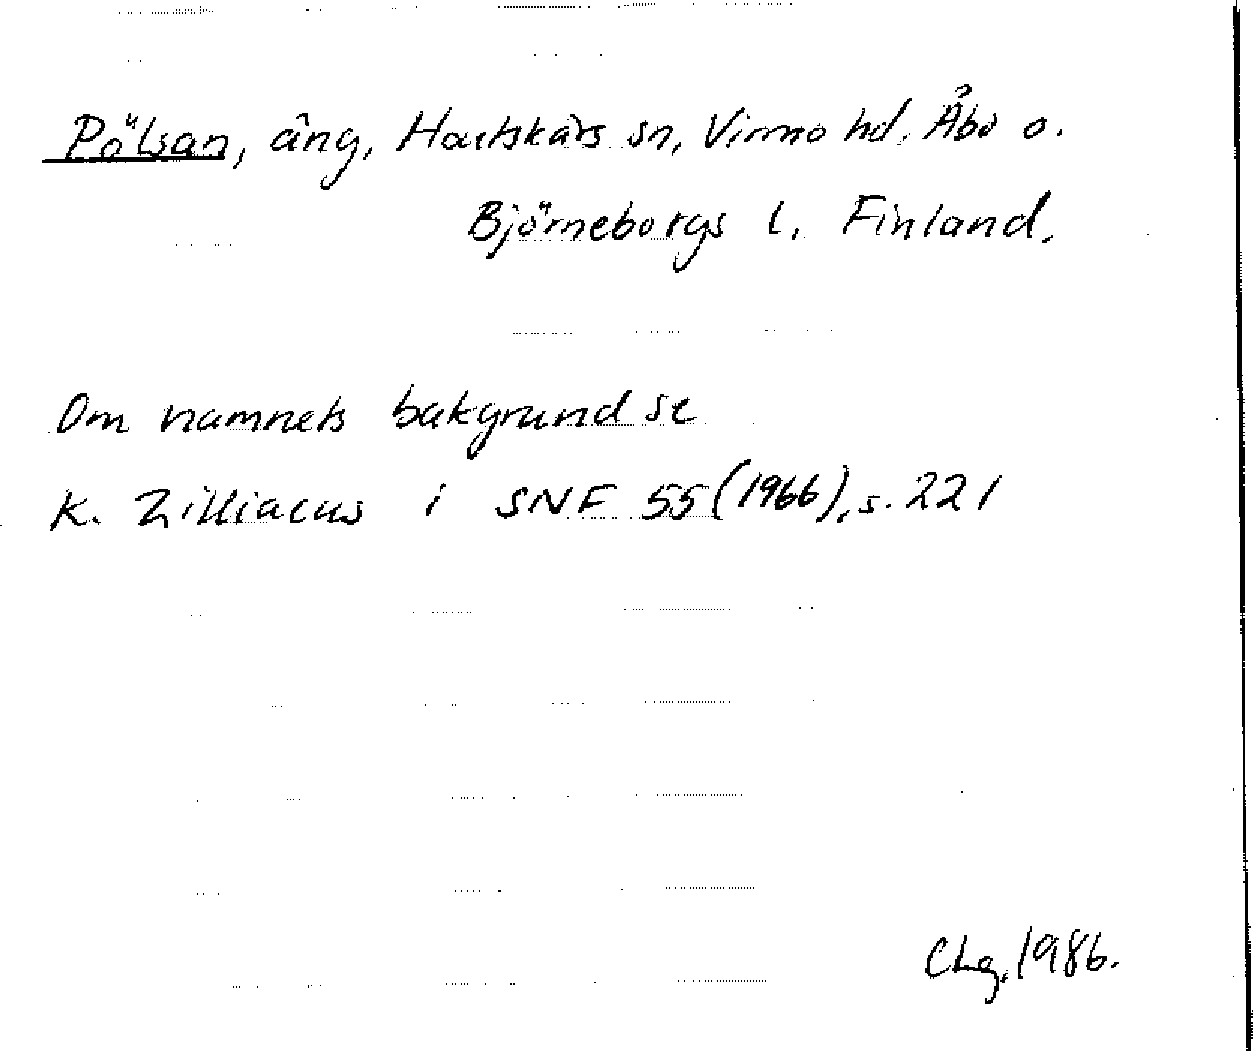 Pölsan, äng, Houtskärs sn, Virmo hd, Åbo o.
Björneborgs l, Finland.
Om namnets bakgrund se
K. Zilliacus i SNF 55 (1966), s. 221
Chg, 1986.